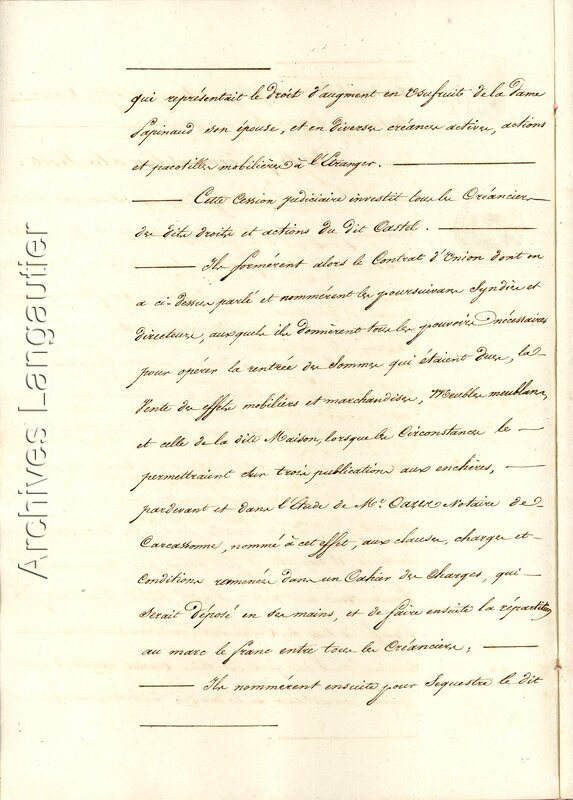 qui représentait le droit d'augment en usufruit de la dame
Papinaud son épouse, et en diverses créances actives, actions
et pacotilles mobilières à l'Etranger.
Cette Cession judiciaire investit tous les Créanciers
des dits droits et actions du dit Castel.
Ils formérent alors le Contrat d'Union dont on
a ci-dessus parlé et nommérent les poursuivans Syndics et
directeurs, auxquels ils donnèrent tous les pouvoirs nécessaires
pour opérer la rentrée des Sommes qui étaient dues, la
Vente des effets mobiliers et marchandises, Meubles meublans,
et celle de la dite Maison, lorsque les Circonstances le
permettraient sur trois publications aux enchères,
pardevant et dans l'Etude de Mr. Cazes Notaire de
Carcassonne, nommé à cet effet, aux clauses, charges et
Conditions ramenées dans un Cahier des Charges, qui
serait déposé en ses mains, et de faire ensuite la répartition
au marc le franc entre tous les Créanciers;
Ils nommérent ensuite pour Sequestre le dit
Archives Langautier